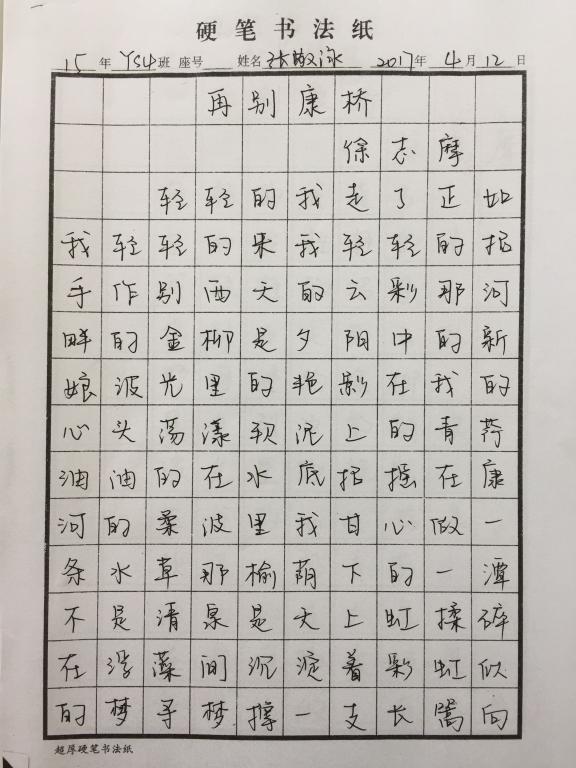 硬笔书法纸
15年 YS4班 座号 姓名 张敬泳 2017年4月12日
再别康桥
徐志摩
轻轻的我走了正如
我轻轻的来我轻轻的招
手作别西天的云彩那河
畔的金柳是夕阳中的新
娘波光里的艳影在我的
心头荡漾软泥上的青荇
油油的在水底招摇在康
河的柔波里我甘心做一
条水草那榆荫下的一潭
不是清泉是天上虹揉碎
在浮藻间沉淀着彩虹似
的梦寻梦撑一支长篙向
超厚硬笔书法纸